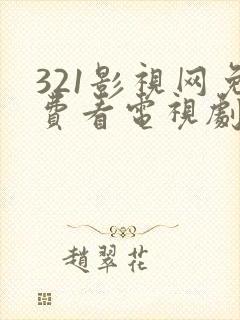 321影視网免
費看電視劇
趙翠花